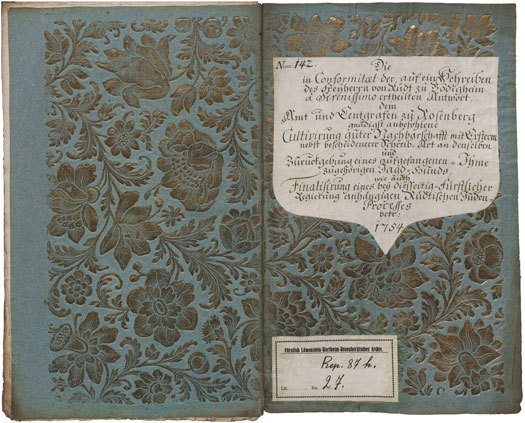 Num: 142.
Die
in Conformitaet der, auf ein Schreiben
des Freyherrn von Rüdt zu Bödigheim
a Serenissimo ertheilten Antwort,
dem
Amt und Centgrafen zu Rosenberg
gnädigst anbefohlene
Cultivirung guter Nachbarschafft mit Ersterm
nebst bescheidenerer Schreib-Art an denselben
und
Zurückgebung eines aufgefangenen - Ihme
zugehörigen Jagd-Hunds
wie auch
Finalisirung eines bey diesseitig-Fürstlicher
Regierung anhängigen Rüdtischen Juden
Processes
betr:
1754
Fürstlich Löwenstein-Wertheim-Rosenbergisches Archiv.
Rep. 87 h.
Lit. No. 27.